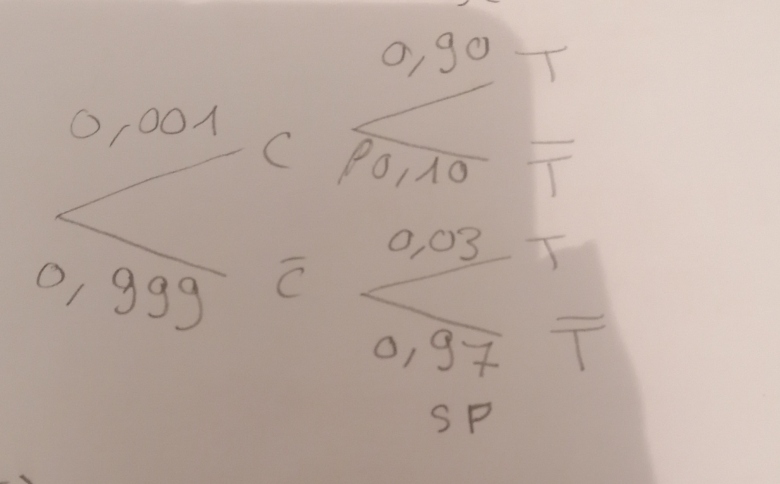 0,90 T
0,001 C
P0,10 T̅
0,03 T
0,999 C̅
0,97 T̅
SP